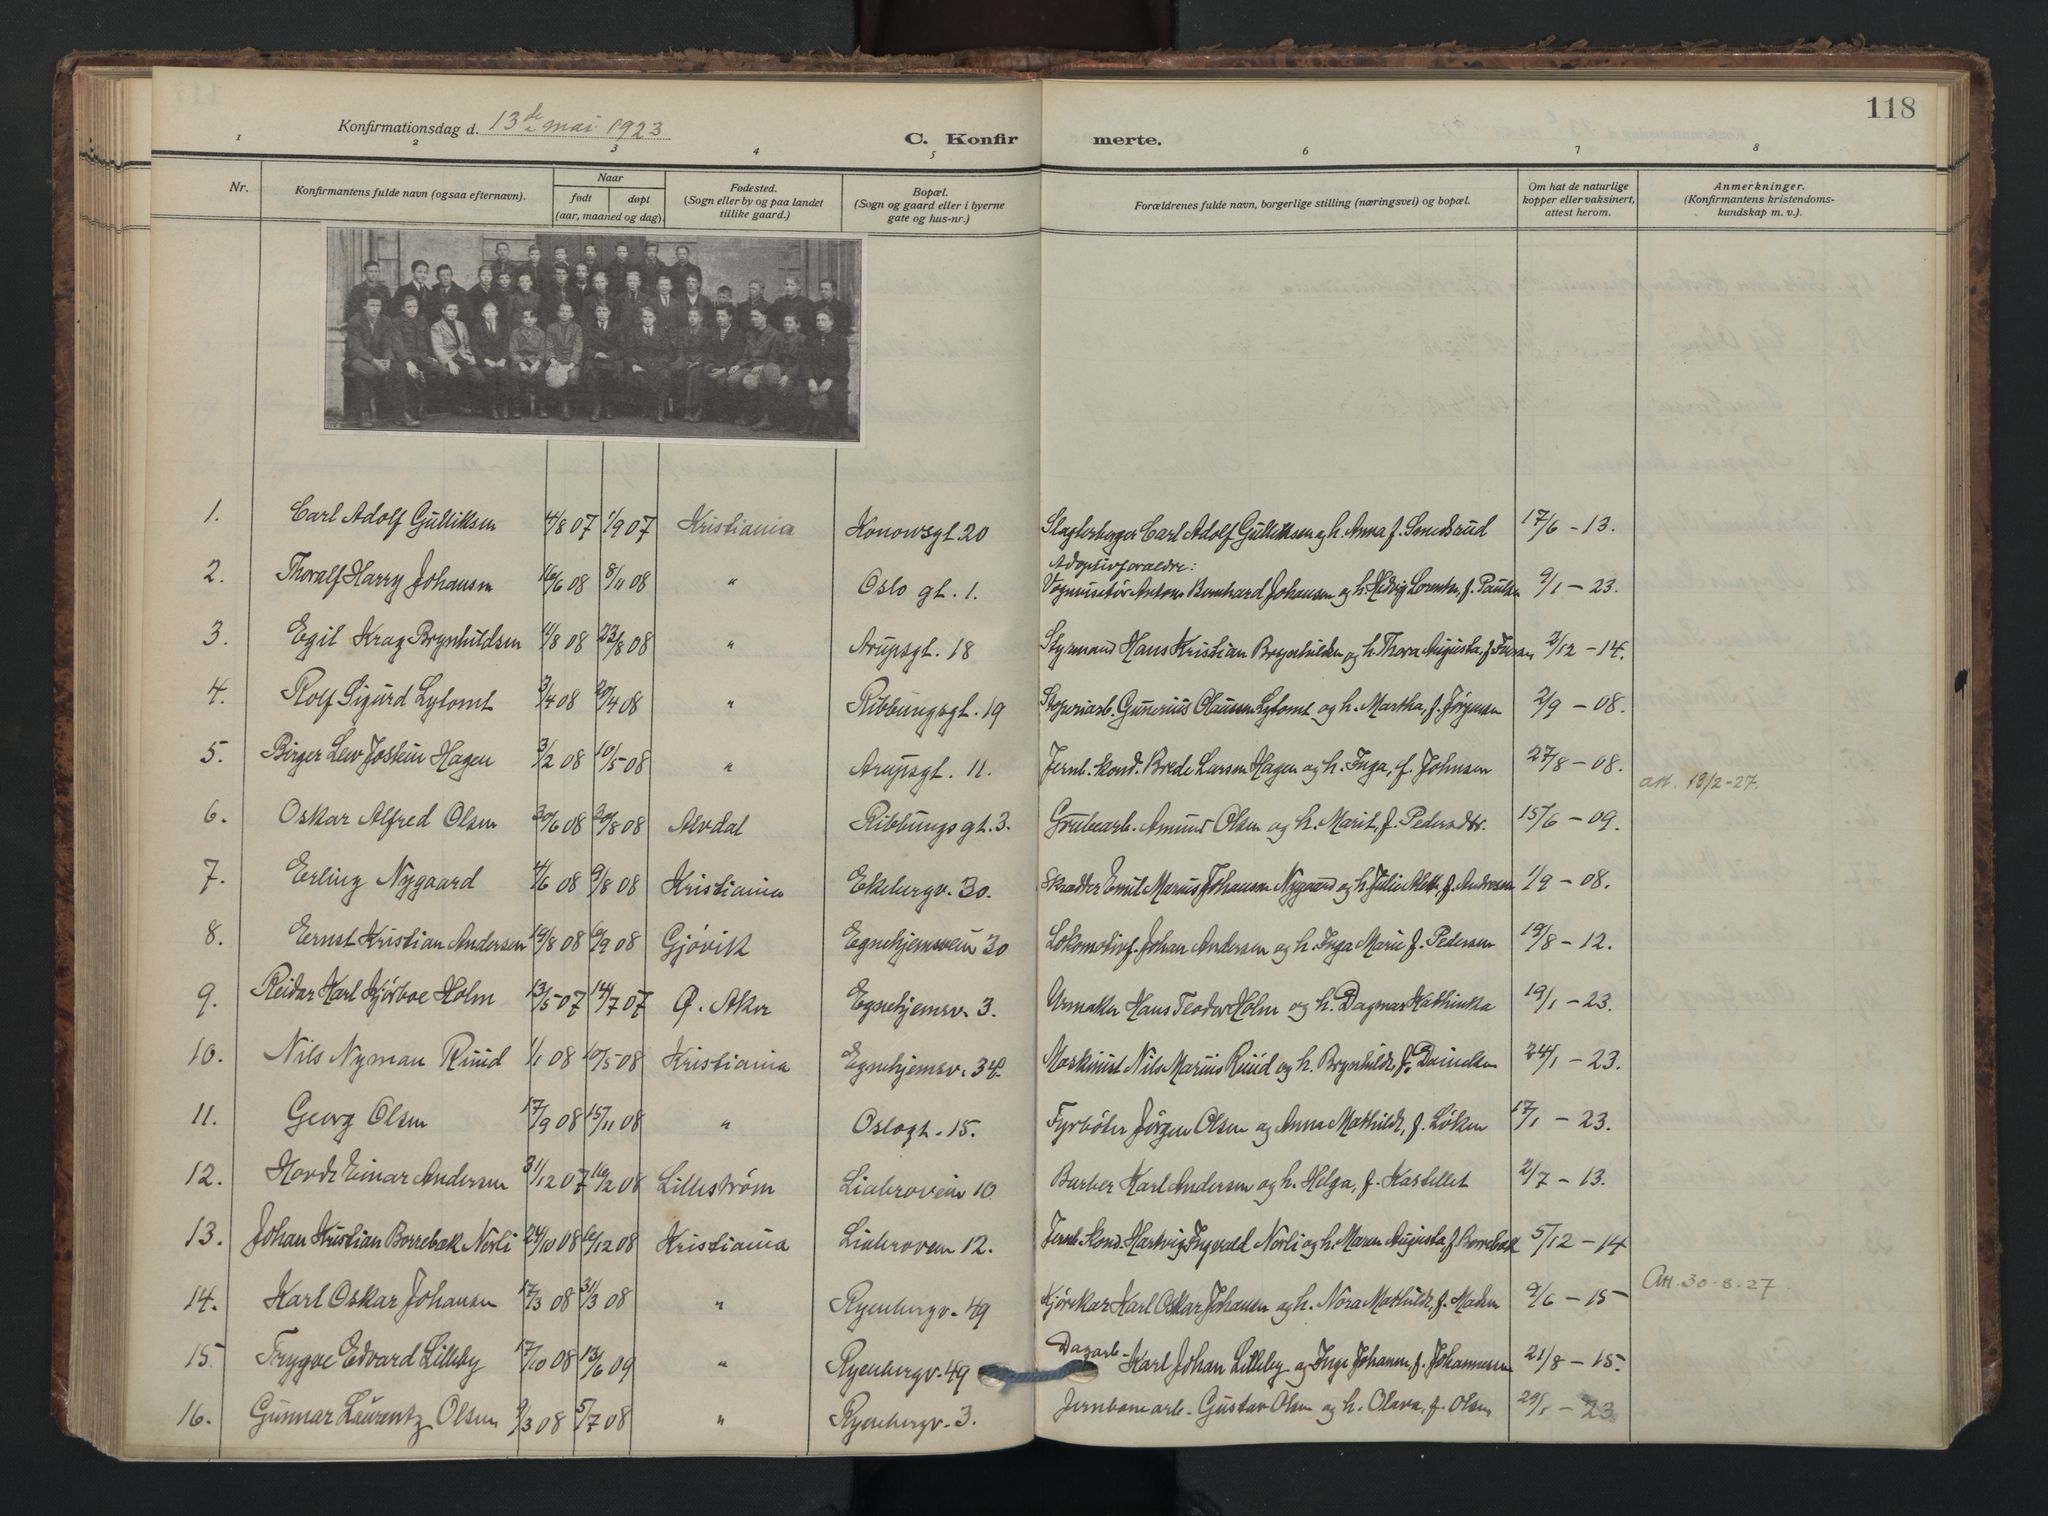 118
Konfirmationsdag d. 13de mai 1923
C. Konfirmerte.
1 2 3 4 5 6 7 8
Nr.
Konfirmantens fulde navn (ogsaa efternavn).
Naar
født døpt
(aar, maaned og dag).
Fødested.
(Sogn eller by og paa landet
tillike gaard.)
Bopæl.
(Sogn og gaard eller i byerne
gate og hus-nr.)
Forældrenes fulde navn, borgerlige stilling (næringsvei) og bopæl.
Om hat de naturlige
kopper eller vaksinert,
attest herom.
Anmerkninger.
(Konfirmantens kristendoms-
kundskap m. v.).
1. Carl Adolf Gulliksen 4/8 07 1/9 07 Kristiania Konowsgt. 20 Slagterborger Carl Adolf Gulliksen og h. Anna f. Smedsrud 17/6 - 13.
Adoptivforældre:
2. Thoralf Harry Johansen 16/6 08 8/11 08 " Oslo gt. 1. Vognvisitør Anton Bernhard Johansen og h. Hedvig Lorentze, f. Paulsen 9/1 - 23.
3. Egil Krag Brynhildsen 11/8 08 23/8 08 " Arupsgt. 18 Styrmand Hans Kristian Brynhildsen og h. Thora Augusta, f. 2/12 - 14.
4. Rolf Sigurd Lytomt 3/4 08 20/4 08 " Ribbungsgt. 19 Gunerius Olausen Lytomt og h. Martha, f. Jørgensen 2/9 - 08.
5. Birger Lew Jostein Hagen 3/2 08 10/5 08 " Arupsgt. 11. Jernb. kond. Brede Larsen Hagen og h. Inga, f. Johnsen 27/8 - 08.
att. 18/2-27.
6. Oskar Alfred Olsen 30/6 08 30/8 08 Alvdal Ribbungsgt. 3. Grubearb. Amund Olsen og h. Marit, f. Pedersdtr. 15/6 - 09.
7. Erling Nygaard 4/6 08 9/8 08 Kristiania Ekebergv. 30. Skrædder Emil Marius Johansen Nygaard og h. Julie Aleth, f. Andresen 1/9 - 08.
8. Ernst Kristian Andersen 19/8 08 6/9 08 Gjøvik Egnehjemsvein 30 Lokomotivf. Johan Andersen og h. Inga Marie f. Pedersen 19/8 - 12.
9. Reidar Karl Kjørboe Holm 13/5 07 14/7 07 Ø. Aker Egnehjemsv. 3. Urmaker Hans Teodor Holm og h. Dagmar Kathinka 19/1 - 23.
10. Nils Nyman Ruud 1/1 08 10/5 08 Kristiania Egnehjemsv. 34 Maskinist Nils Marius Ruud og h. Brynhild, f. Danielsen 24/1 - 23.
11. Georg Olsen 17/9 08 15/11 08 " Oslogt. 15. Fyrbøter Jørgen Olsen og Anna Mathilde, f. Løken 17/1 - 23.
12. Hovde Einar Andersen 31/12 07 16/2 08 Lillestrøm Liabrovein 10 Barber Karl Andersen og h. Helga, f. Kastellet 2/7 - 13.
13. Johan Kristian Borrebæk Nerli 24/10 08 16/12 08 Kristiania Liabrovein 12. Jernb. kond. Hartvig Ingvald Nerli og h. Maren Augusta, f. Borrebæk 5/12 - 14
14. Karl Oskar Johansen 17/3 08 31/3 08 " Ryenbergv. 49 Kjørekar Karl Oskar Johansen og h. Nora Mathilde, f. Madsen 9/6 - 15
Att. 30-8-27
15. Trygve Edvard Lilleby 17/10 08 13/6 09 " Ryenbergv. 49 Dagarb. Karl Johan Lilleby og Inga Johanne, f. Johannessen 21/8 - 15.
16. Gunnar Laurentz Olsen 9/3 08 5/7 08 " Ryenbergv. 3. Jernbanearb. Gustav Olsen og h. Olava, f. Olsen 29/1 - 23.